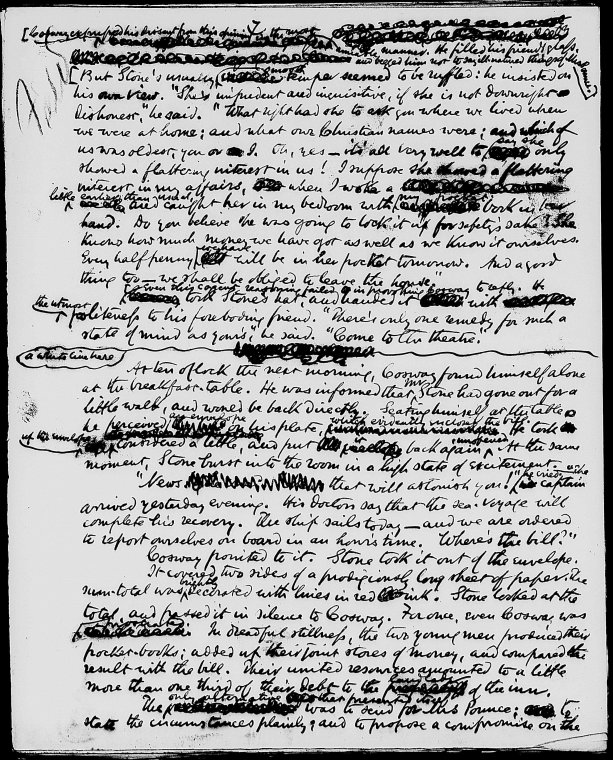 7
[Cosway excused his divisor from this opinion in the most
amiable manner. He filled his friend's glass,
and begged him not to say ill-natured things of
[But Stone's usually smooth temper seemed to be ruffled: he insisted on
his own view. "She's impudent and inquisitive, if she is not downright
dishonest," he said. "What right had she to ask you where we lived when
we were at home; and what our Christian names were; and which of
us was oldest, you or I. Oh, yes — it's all very well to say she only
showed a flattering interest in us! I suppose she showed a flattering
interest in my affairs, when I woke a
little earlier than usual, and caught her in my bedroom with my pocket-book in her
hand. Do you believe she was going to lock it up for safety's sake? She
knows how much money we have got as well as we know it ourselves.
Every half penny we have will be in her pocket tomorrow. And a good
thing too — we shall be obliged to leave the house."
Even this cogent reasoning failed in provoking Cosway to reply. He
took Stone's hat, and handed it with
the utmost politeness to his foreboding friend. "There's only one remedy for such a
state of mind as yours," he said. "Come to the theatre."
a white line here
At ten o'clock the next morning, Cosway found himself alone
at the breakfast-table. He was informed that Mr Stone had gone out for a
little walk, and would be back directly. Seating himself at the table
he perceived an envelope on his plate, which evidently inclosed the bill. He took
up the envelope, considered a little, and put it back again unopened. At the same
moment, Stone burst into the room in a high state of excitement.
"News that will astonish you!" he cried. "The captain
arrived yesterday evening. His doctors say that the sea-voyage will
complete his recovery. The ship sails today — and we are ordered
to report ourselves on board in an hour's time. Where's the bill?"
Cosway pointed to it. Stone took it out of the envelope.
It covered two sides of a prodigiously long sheet of paper. The
sum-total was brightly decorated with lines in red ink. Stone looked at the
total, and passed it in silence to Cosway. For once, even Cosway was
prostrated. In dreadful stillness, the two young men produced their
pocket-books; added up their joint stores of money, and compared the
result with the bill. Their united resources amounted to a little
more than one third of their debt to the landlady of the inn.
The only alternative that presented itself was to send for Mrs Pounce; to
state the circumstances plainly; and to propose a compromise on the